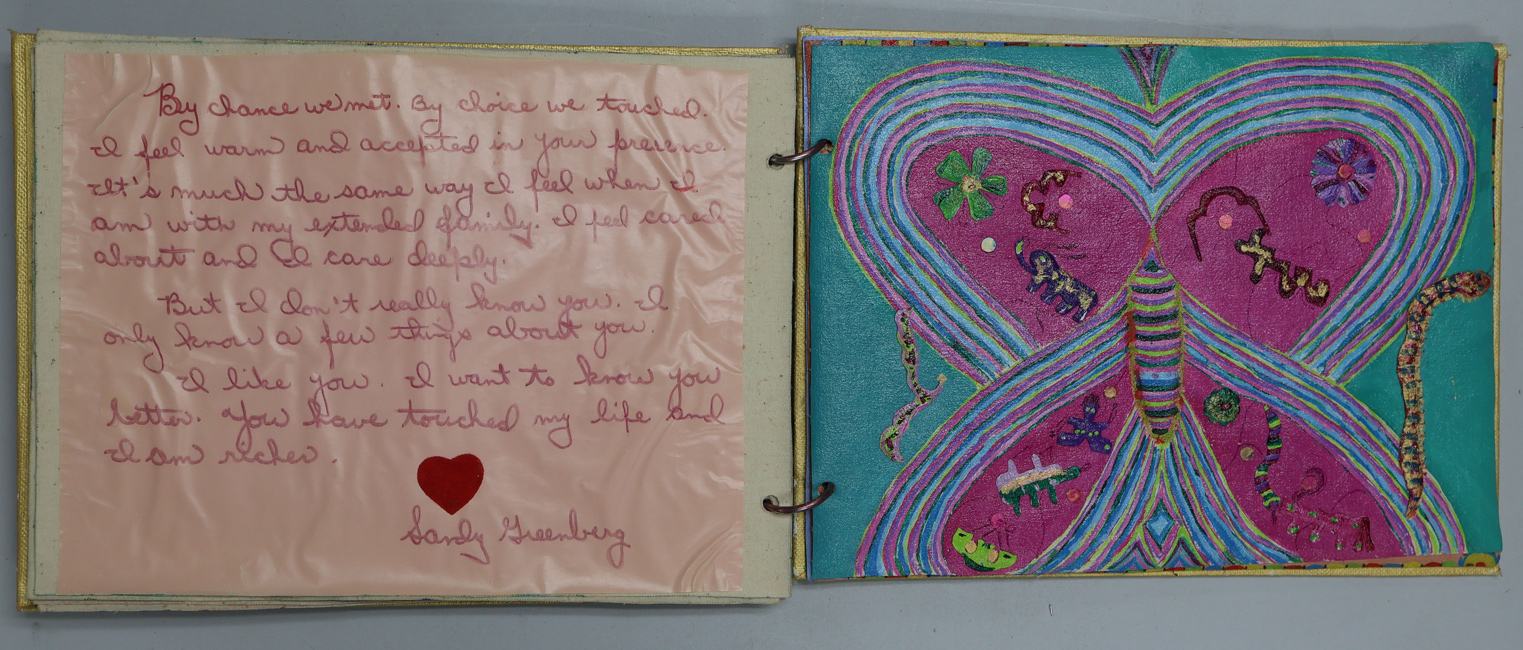 By chance we met. By choice we touched.
I feel warm and accepted in your presence.
It's much the same way I feel when I
am with my extended family. I feel cared
about and I care deeply.
But I don't really know you. I
only know a few things about you.
I like you. I want to know you
better. You have touched my life and
I am richer.
Sandy Greenberg